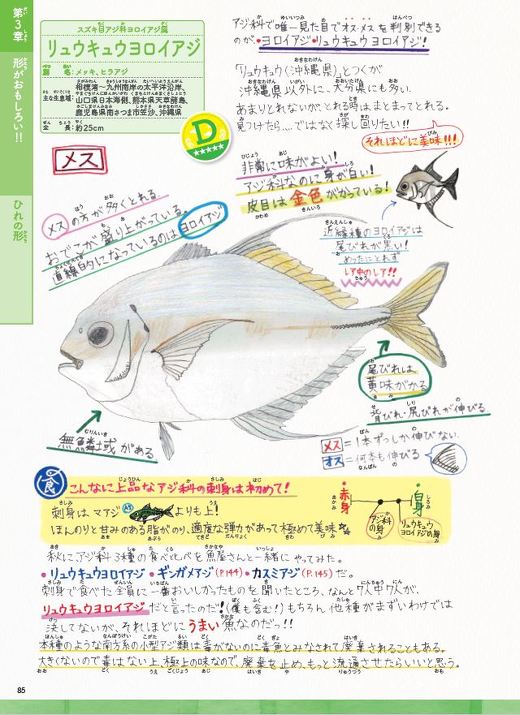 第3章 形がおもしろい!!
ひれの形
スズキ目アジ科ヨロイアジ属
リュウキュウヨロイアジ
別名:メッキ、ヒラアジ
主な生息域:相模湾〜九州南岸の太平洋沿岸、
山口県日本海側、熊本県天草諸島、
鹿児島県南さつま市笠沙、沖縄県
全長:約25cm
D
★★★★★
アジ科で唯一見た目でオス・メスを判別できる
のが・ヨロイアジ・リュウキュウヨロイアジ!
「リュウキュウ(沖縄県)」とつくが
沖縄県以外に、大分県にも多い。
あまりとれないがとれる時はまとまってとれる。
見つけたら…ではなく探し回りたい!!
それほどに美味!!!
メス
非常に味がよい!
アジ科なのに身が白い!
皮目は金色がかっている!
メスの方が多くとれる
おでこが盛り上がっている。
直線的になっているのはヨロイアジ
近縁種のヨロイアジは
尾びれが黒い!
めったにとれず
レア中のレア!!
尾びれは
黄味がかる
背びれ・尻びれが伸びる
メス=1本ずつしか伸びない。
オス=何本も伸びる
無鱗域がある
食
こんなに上品なアジ科の刺身は初めて!
刺身はマアジよりも上!
ほんのりと甘みのある脂がのり、適度な弾力があって極めて美味
赤身
白身
アジ科の身
リュウキュウヨロイアジの身
秋にアジ科3種の食べ比べを魚屋さんと一緒にやってみた。
・リュウキュウヨロイアジ・ギンガメアジ(P.144)・カスミアジ(P.145)だ。
刺身で食べた全員に一番おいしかったものを聞いたところ、なんと7人中7人が、
リュウキュウヨロイアジだと言ったのだ!(僕も含む!)もちろん他種がまずいわけでは
決してないが、それほどにうまい魚なのだっ!!
本種のような南方系の小型アジ類は毒がないのに毒魚とみなされて廃棄されることもある。
大きくないので毒はない上、極上の味なので、廃棄を止め、もっと流通させたらいいと思う。
85